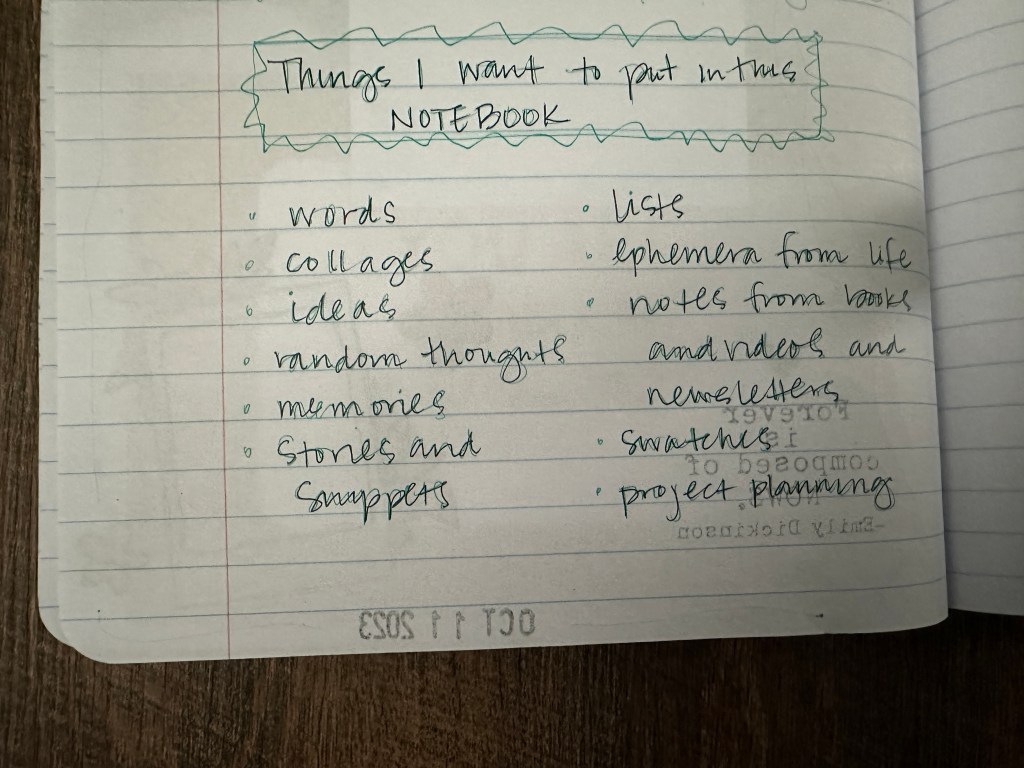 Things I want to put in this
NOTEBOOK
words
collages
ideas
random thoughts
memories
stories and
snippets
lists
ephemera from life
notes from books
and videos and
newsletters
swatches
project planning
Forever
is
composed of
-Emily Dickinson
OCT 11 2023